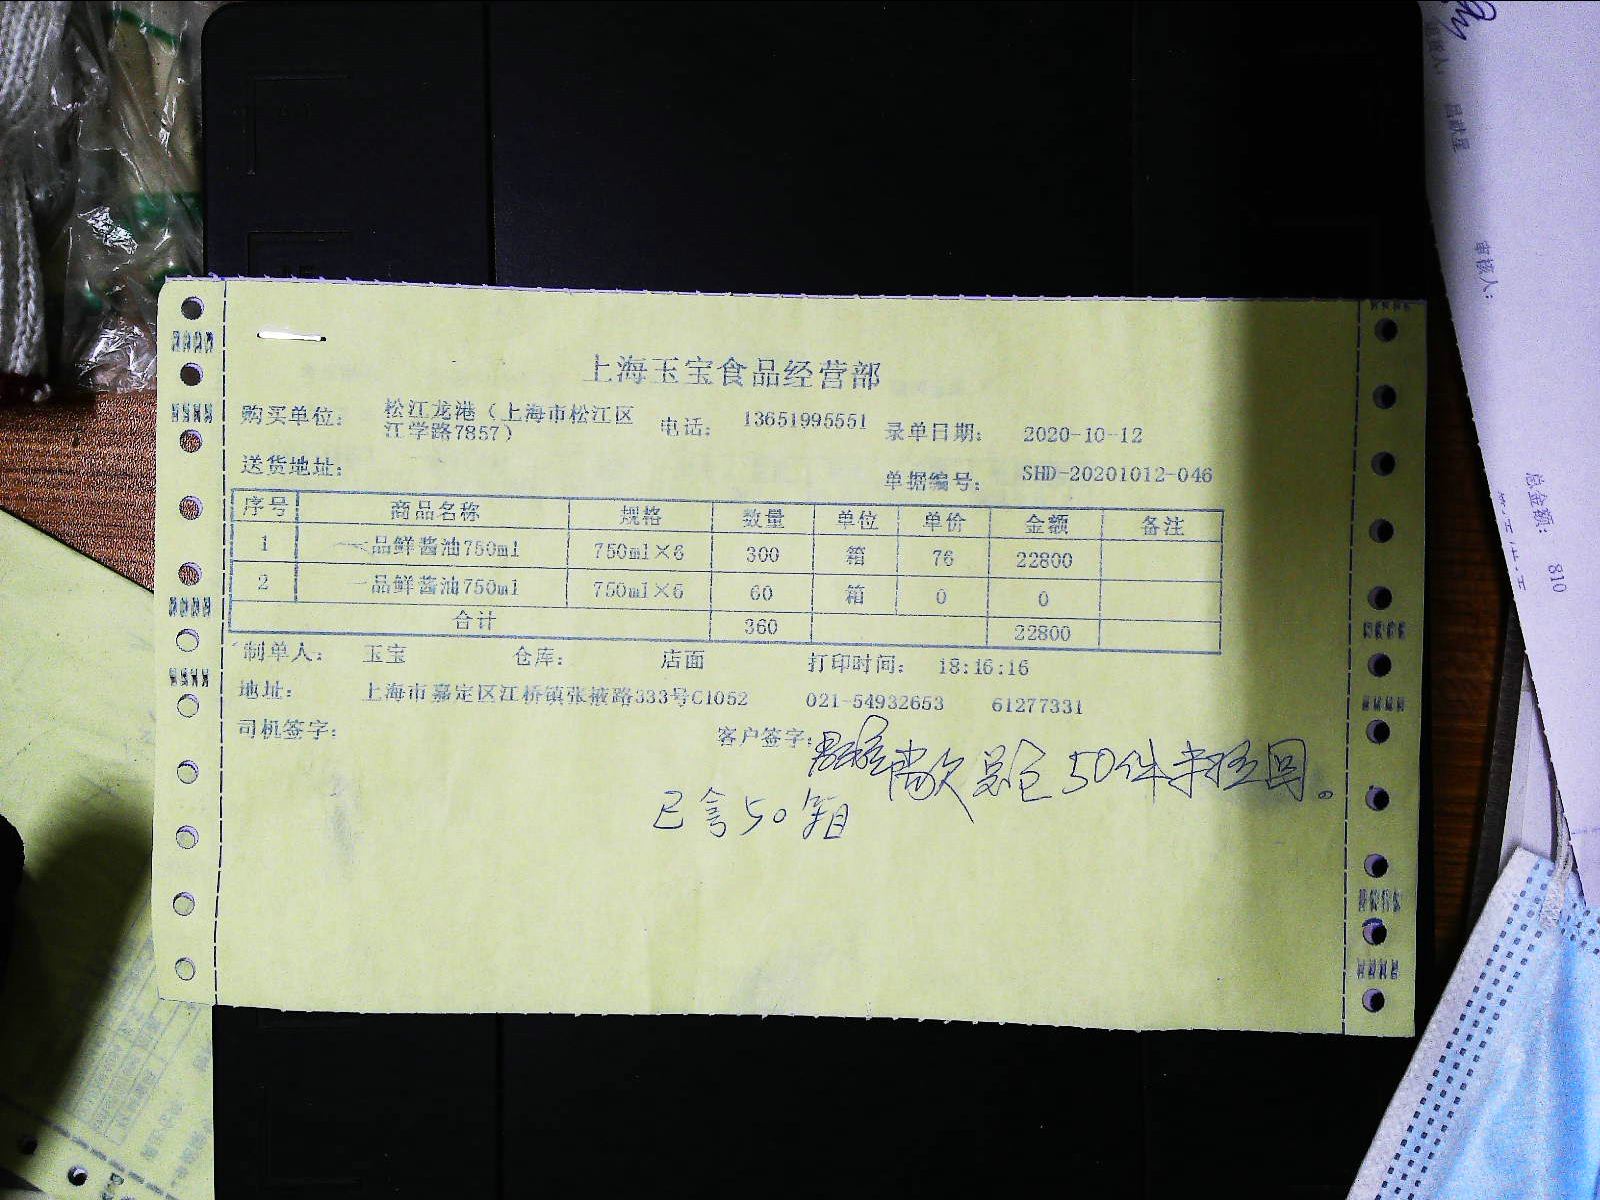 上海玉宝食品经营部
购买单位： 松江龙港（上海市松江区江学路7857） 电话： 13651995551 录单日期： 2020-10-12
送货地址： 单据编号： SHD-20201012-046
序号 商品名称 规格 数量 单位 单价 金额 备注
1 一品鲜酱油750ml 750ml×6 300 箱 76 22800
2 一品鲜酱油750ml 750ml×6 60 箱 0 0
合计 360 22800
制单人： 玉宝 仓库： 店面 打印时间： 18:16:16
地址： 上海市嘉定区江桥镇张掖路333号C1052 021-54932653 61277331
司机签字： 客户签字：
尚欠总仓50件未拉回。
已拿50箱
审核人：
总金额： 810